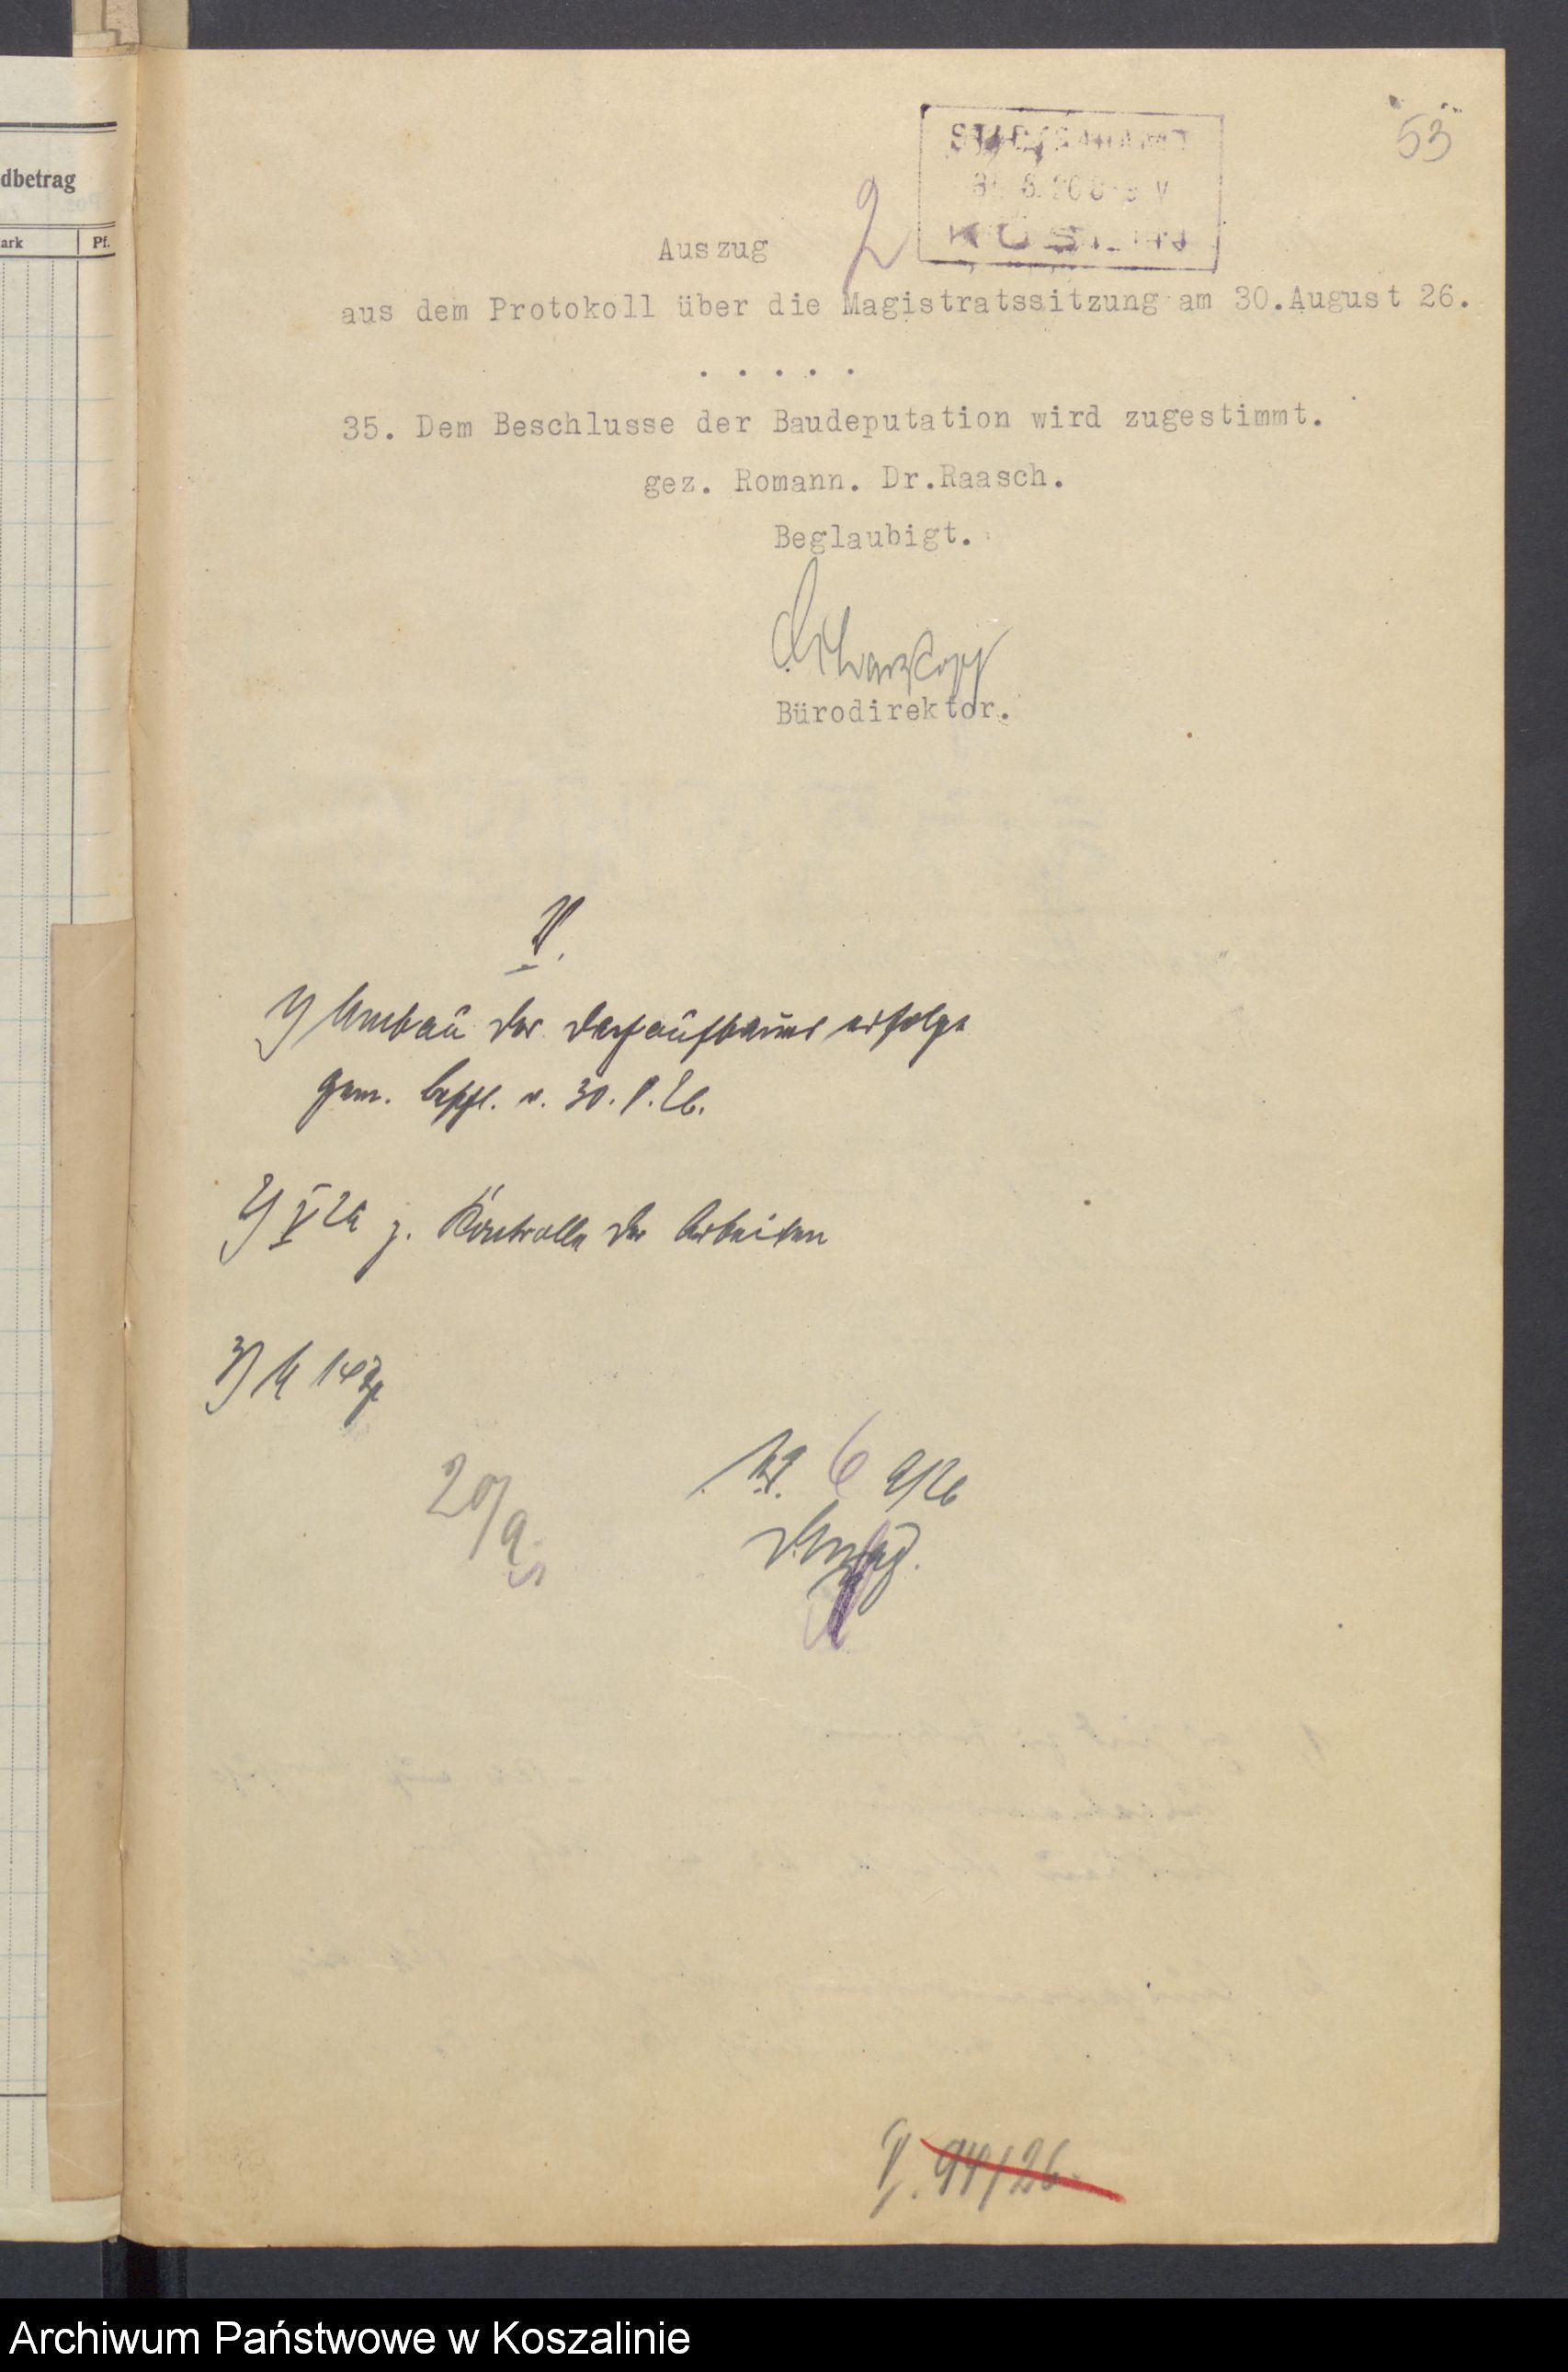 dbetrag
ark Pf.
53
KÖSLIN
2
Auszug
aus dem Protokoll über die Magistratssitzung am 30.August 26.
. . . . .
35. Dem Beschlusse der Baudeputation wird zugestimmt.
gez. Romann. Dr.Raasch.
Beglaubigt.
Bürodirektor.
V.
1) Umbau des erfolgt
gem. Beschl. v. 30.8.26.
2) V z. Kontrolle der Arbeiten
3)
6 9/26
20/9
V. 94/26
Archiwum Państwowe w Koszalinie